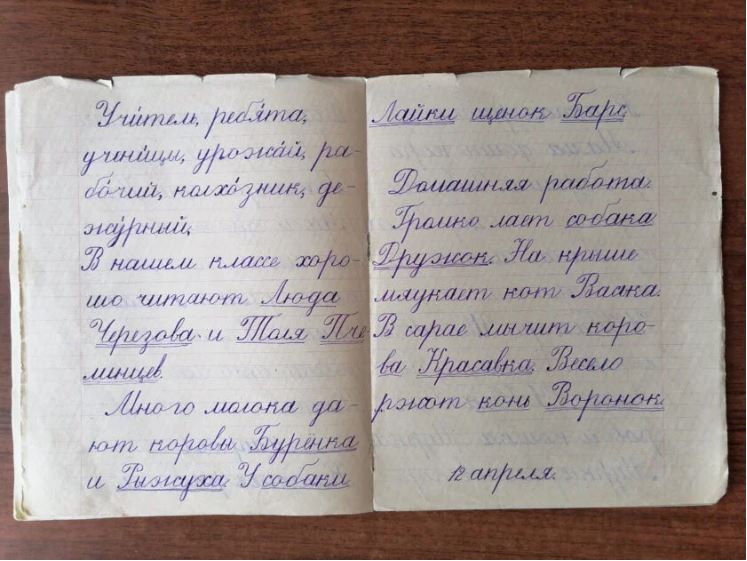 Учи́тель, ребя́та,
учени́цы, урожа́й, ра-
бо́чий, колхо́зник, де-
жу́рный.
В нашем классе хоро-
шо читают Люда
Черезова и Толя Пле-
менцев.
Много молока да-
ют коровы Бурёнка
и Рыжуха. У собаки
Лайки щенок Барс.
Домашняя работа.
Громко лает собака
Дружок. На крыше
мяукает кот Васка.
В сарае мычит коро-
ва Красавка. Весело
ржот конь Воронок.
12 апреля.